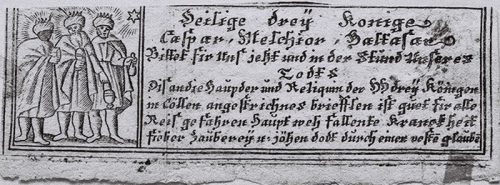 Heilige drey Konige
Caspar, Melchior, Baltasar
Bittet für Uns jeht und in der Stund Unseres
Todts
Dis an die Haupder und Reliquin der W drey Königen
in Cöllen, angestrichnes briefflen ist guet für alle
Reis gefahren Haupt weh fallente Kranckheit
fieber Zauberey u: jöhen dodt durch einen veste glaube